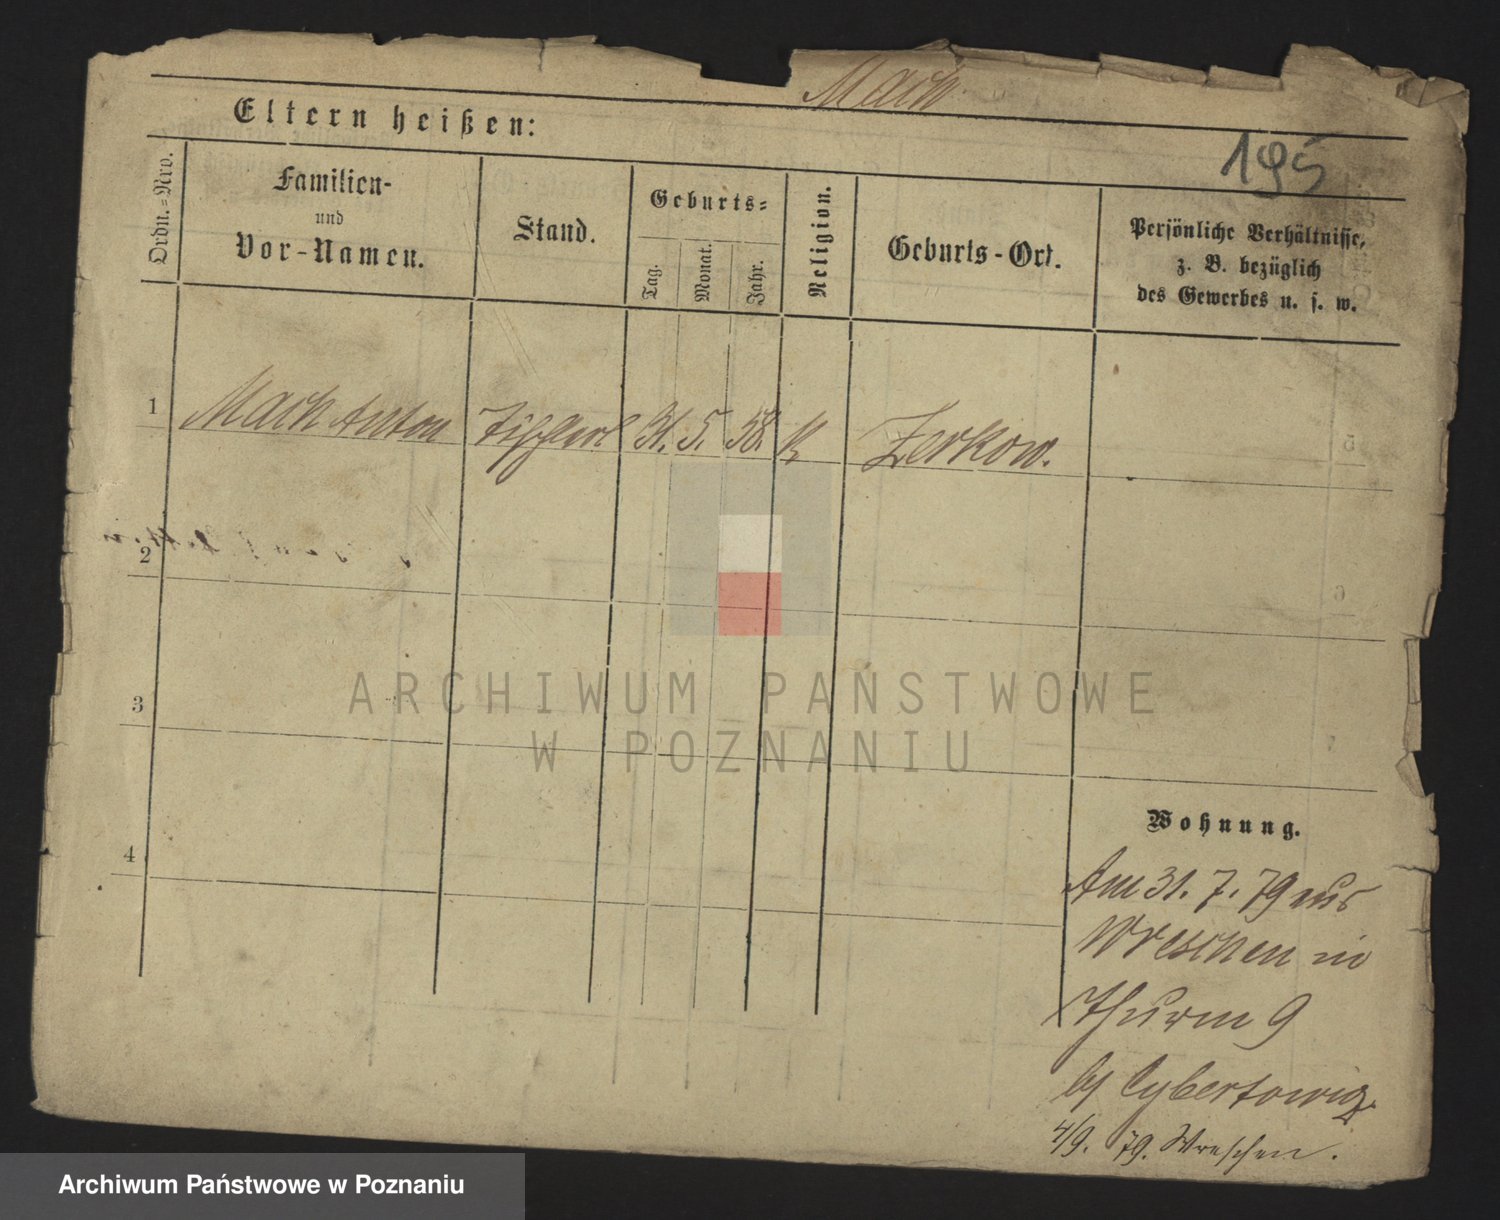 Mach
Eltern heißen:
195
Ordn.=Nro.
Familien-
und
Vor-Namen.
Stand.
Geburts=
Tag.
Monat.
Jahr.
Religion.
Geburts-Ort.
Persönliche Verhältnisse,
z. B. bezüglich
des Gewerbes u. s. w.
1
Mach Anton
31. 5. 58. K
Zerkow.
2
3
4
ARCHIWUM PAŃSTWOWE
W POZNANIU
Wohnung.
Am 31. 7. 79 aus
Wreschen in
Thurm 9
4/9. 79. Wreschen.
Archiwum Państwowe w Poznaniu